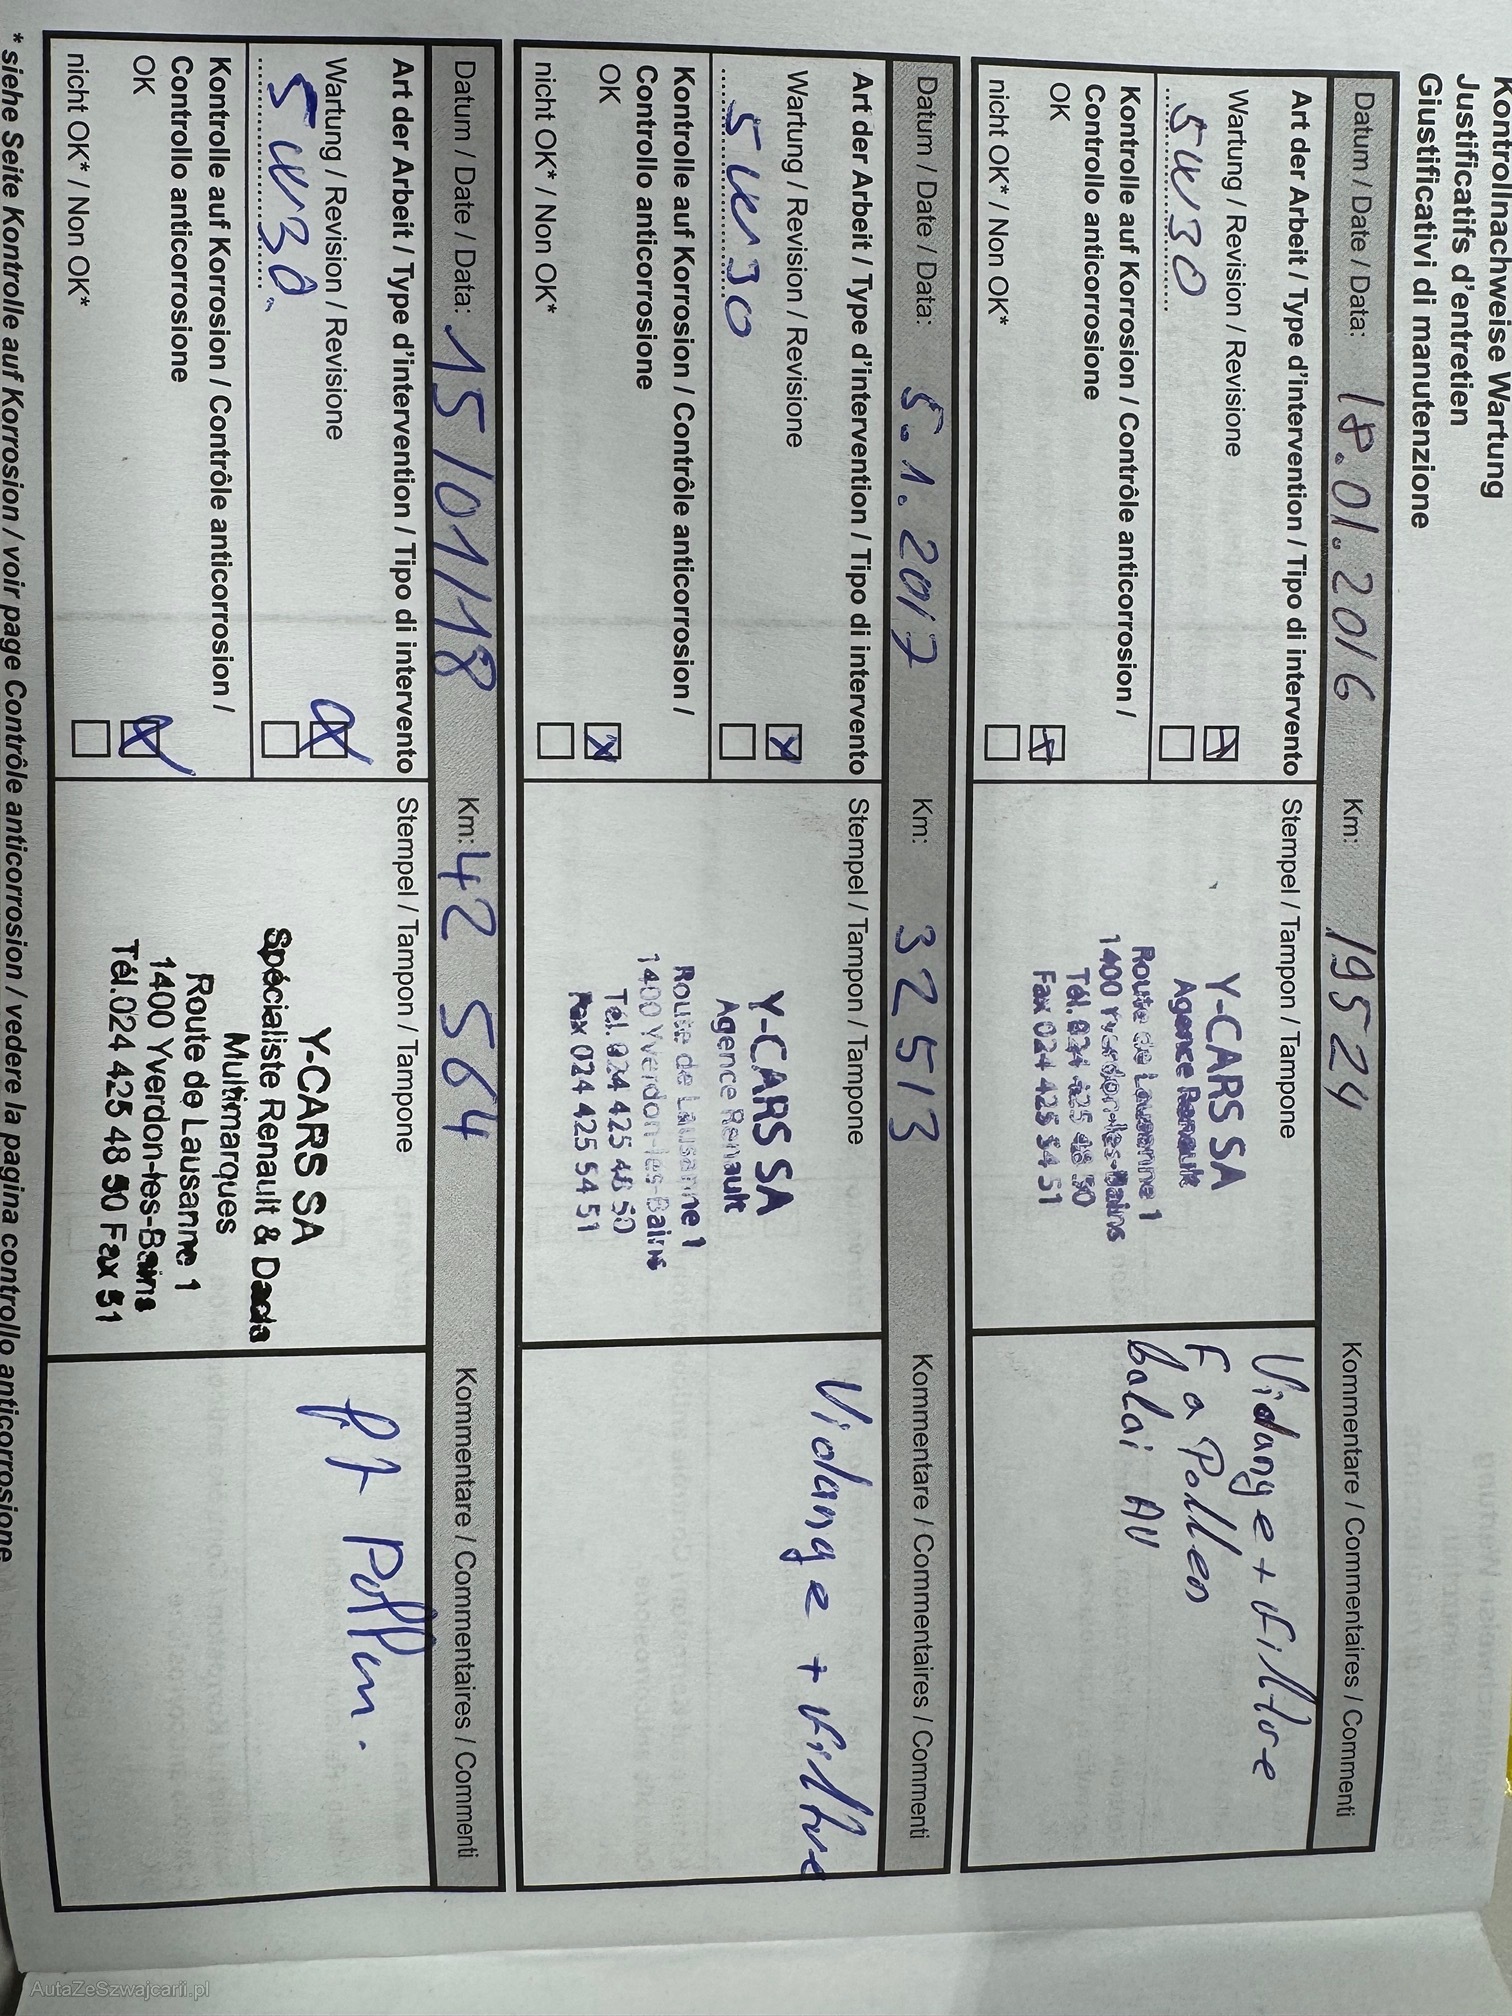 Kontrollnachweise Wartung
Justificatifs d'entretien
Giustificativi di manutenzione
Datum / Date / Data: 18.01.2016 Km: 19524 Kommentare / Commentaires / Commenti
Art der Arbeit / Type d'intervention / Tipo di intervento Stempel / Tampon / Tampone
Wartung / Revision / Revisione
5W30
Kontrolle auf Korrosion / Contrôle anticorrosion /
Controllo anticorrosione
OK
nicht OK* / Non OK*
Y-CARS SA
Agence Renault
Route de Lausanne 1
1400 Yverdon-les-Bains
Tél. 024 425 48 50
Fax 024 425 54 51
Vidange + filtre
F a Pollen
balai AV
Datum / Date / Data: 5.1.2017 Km: 32513 Kommentare / Commentaires / Commenti
Art der Arbeit / Type d'intervention / Tipo di intervento Stempel / Tampon / Tampone
Wartung / Revision / Revisione
5W30
Kontrolle auf Korrosion / Contrôle anticorrosion /
Controllo anticorrosione
OK
nicht OK* / Non OK*
Y-CARS SA
Agence Renault
Route de Lausanne 1
1400 Yverdon-les-Bains
Tél. 024 425 48 50
Fax 024 425 54 51
Vidange + filtre
Datum / Date / Data: 15/01/18 Km: 42 564 Kommentare / Commentaires / Commenti
Art der Arbeit / Type d'intervention / Tipo di intervento Stempel / Tampon / Tampone
Wartung / Revision / Revisione
5W30.
Kontrolle auf Korrosion / Contrôle anticorrosion /
Controllo anticorrosione
OK
nicht OK* / Non OK*
Y-CARS SA
Spécialiste Renault & Dacia
Multimarques
Route de Lausanne 1
1400 Yverdon-les-Bains
Tél.024 425 48 50 Fax 51
Pollen.
* siehe Seite Kontrolle auf Korrosion / voir page Contrôle anticorrosion / vedere la pagina controllo anticorrosione
AutaZeSzwajcarii.pl